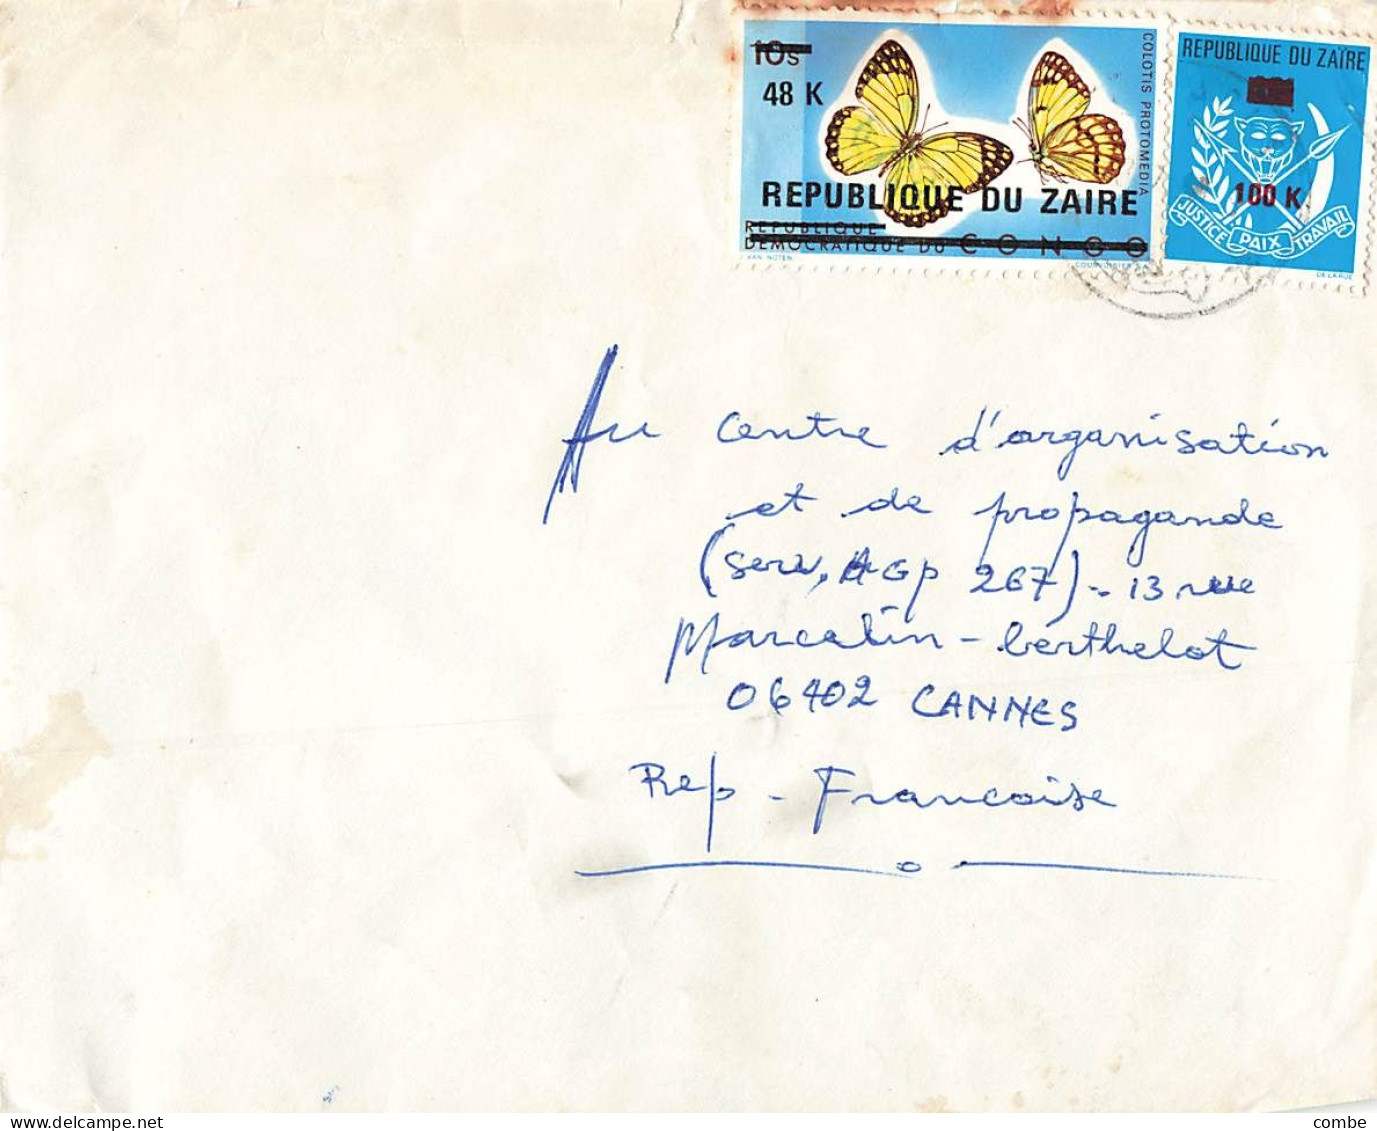 10s
48 K
COLOTIS PROTOMEDIA
REPUBLIQUE DU ZAIRE
REPUBLIQUE
DEMOCRATIQUE DU CONGO
J. VAN NOTEN
COURVOISIER S.A.
REPUBLIQUE DU ZAÏRE
100 K
JUSTICE PAIX TRAVAIL
DE LA RUE
Au Centre d'organisation
et de propagande
(serv, AGP 267) - 13 rue
Marcelin - berthelot
06402 CANNES
Rep - Francaise
combe